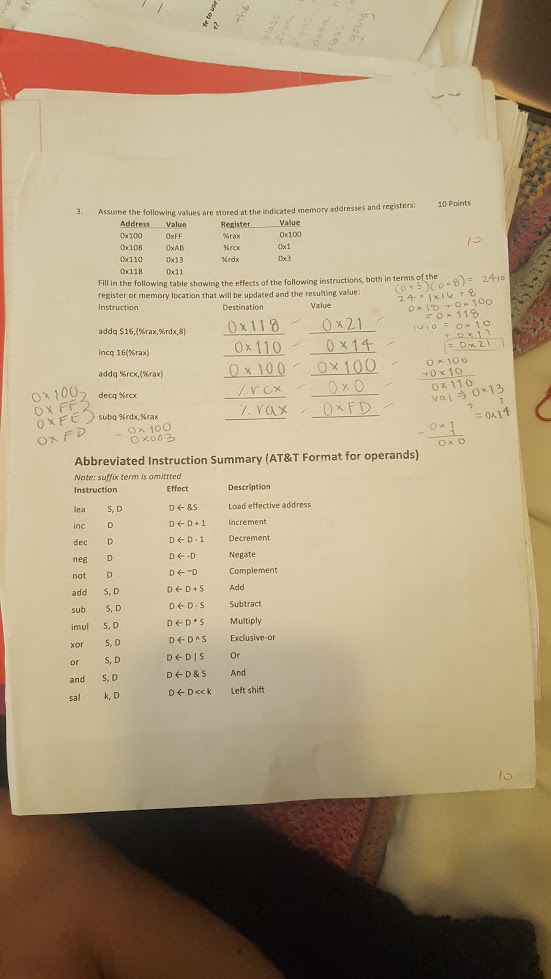 te to use
the
e?
class
from
tions,
data h
class
going
3. Assume the following values are stored at the indicated memory addresses and registers: 10 Points
Address Value Register Value
0x100 0xFF %rax 0x100
0x108 0xAB %rcx 0x1
0x110 0x13 %rdx 0x3
0x118 0x11
10
Fill in the following table showing the effects of the following instructions, both in terms of the
register or memory location that will be updated and the resulting value:
Instruction Destination Value
addq $16,(%rax,%rdx,8) 0x118 0x21
incq 16(%rax) 0x110 0x14
addq %rcx,(%rax) 0x100 0x100
decq %rcx %rcx 0x0
subq %rdx,%rax %rax 0xFD
(0x3)(0x8) = 24₁₀
24 = 1x16 + 8
0x18 + 0x100
= 0x118
16₁₀ = 0x10
+ 0x11
= 0x21
0x100
+0x10
0x110
val ⇒ 0x13
+ 1
= 0x14
0x1
- 1
0x0
0x100
0xFF
0xFE
0xFD
0x100
- 0x003
Abbreviated Instruction Summary (AT&T Format for operands)
Note: suffix term is omittted
Instruction Effect Description
lea S, D D ← &S Load effective address
inc D D ← D + 1 Increment
dec D D ← D - 1 Decrement
neg D D ← -D Negate
not D D ← ~D Complement
add S, D D ← D + S Add
sub S, D D ← D - S Subtract
imul S, D D ← D * S Multiply
xor S, D D ← D ^ S Exclusive-or
or S, D D ← D | S Or
and S, D D ← D & S And
sal k, D D ← D << k Left shift
10